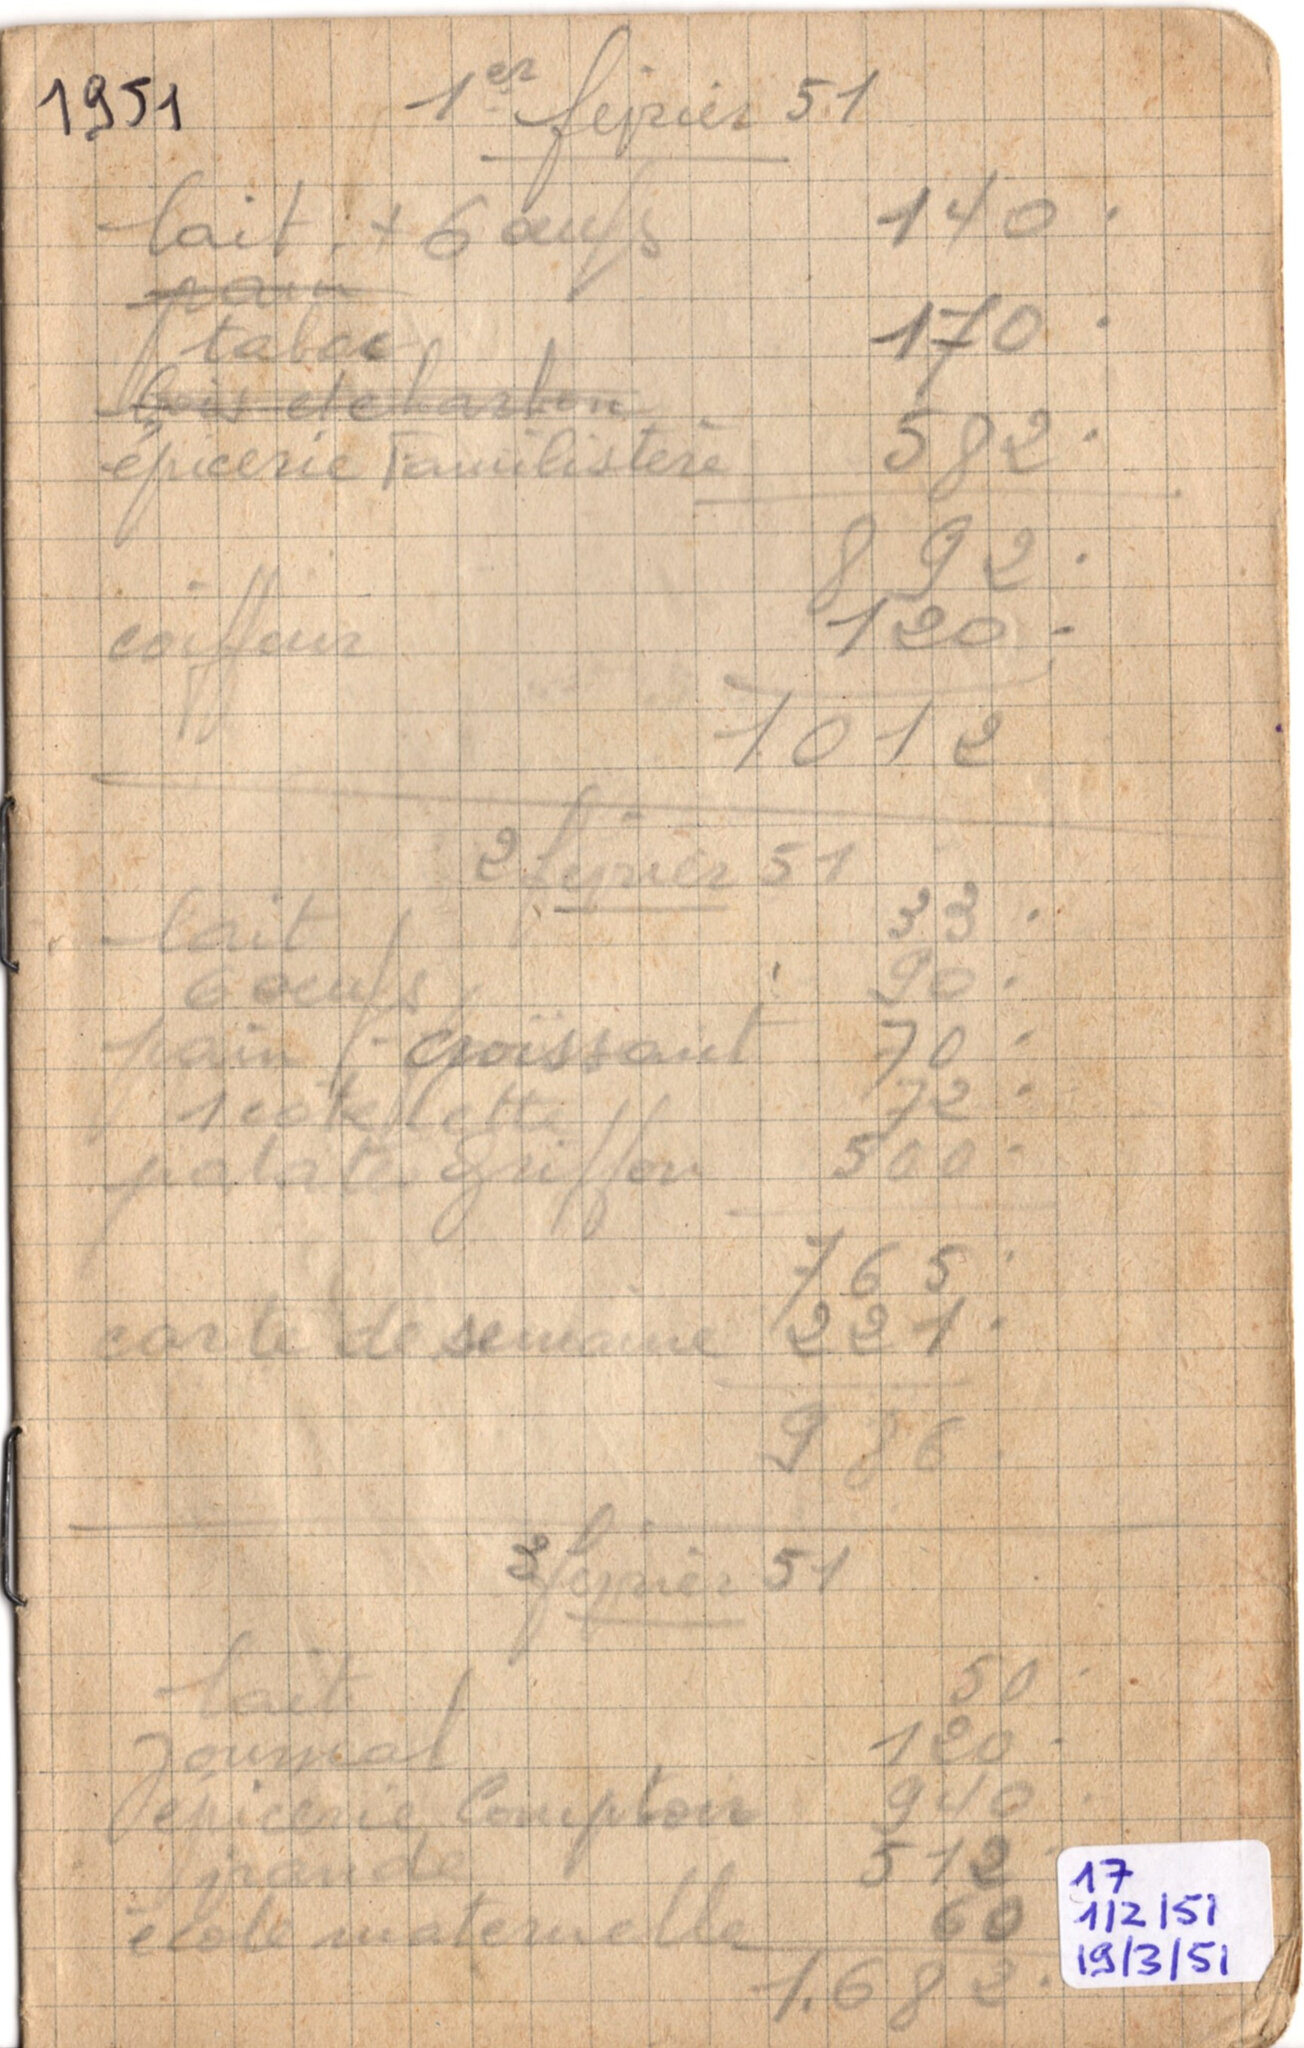 1951
1er février 51
lait + 6 œufs 140.
pain
tabac 170.
bois et charbon
épicerie Familistère 582.
892.
coiffeur 120.
1012
2 février 51
lait 33.
6 œufs 90.
pain + croissant 70.
1 côtelette 72.
patate Griffon 500.
765.
carte de semaine 221.
986.
3 février 51
lait 50.
Journal 120.
épicerie Comptoir 940.
viande 512.
école maternelle 60
1.682.
17
1/2/51
19/3/51